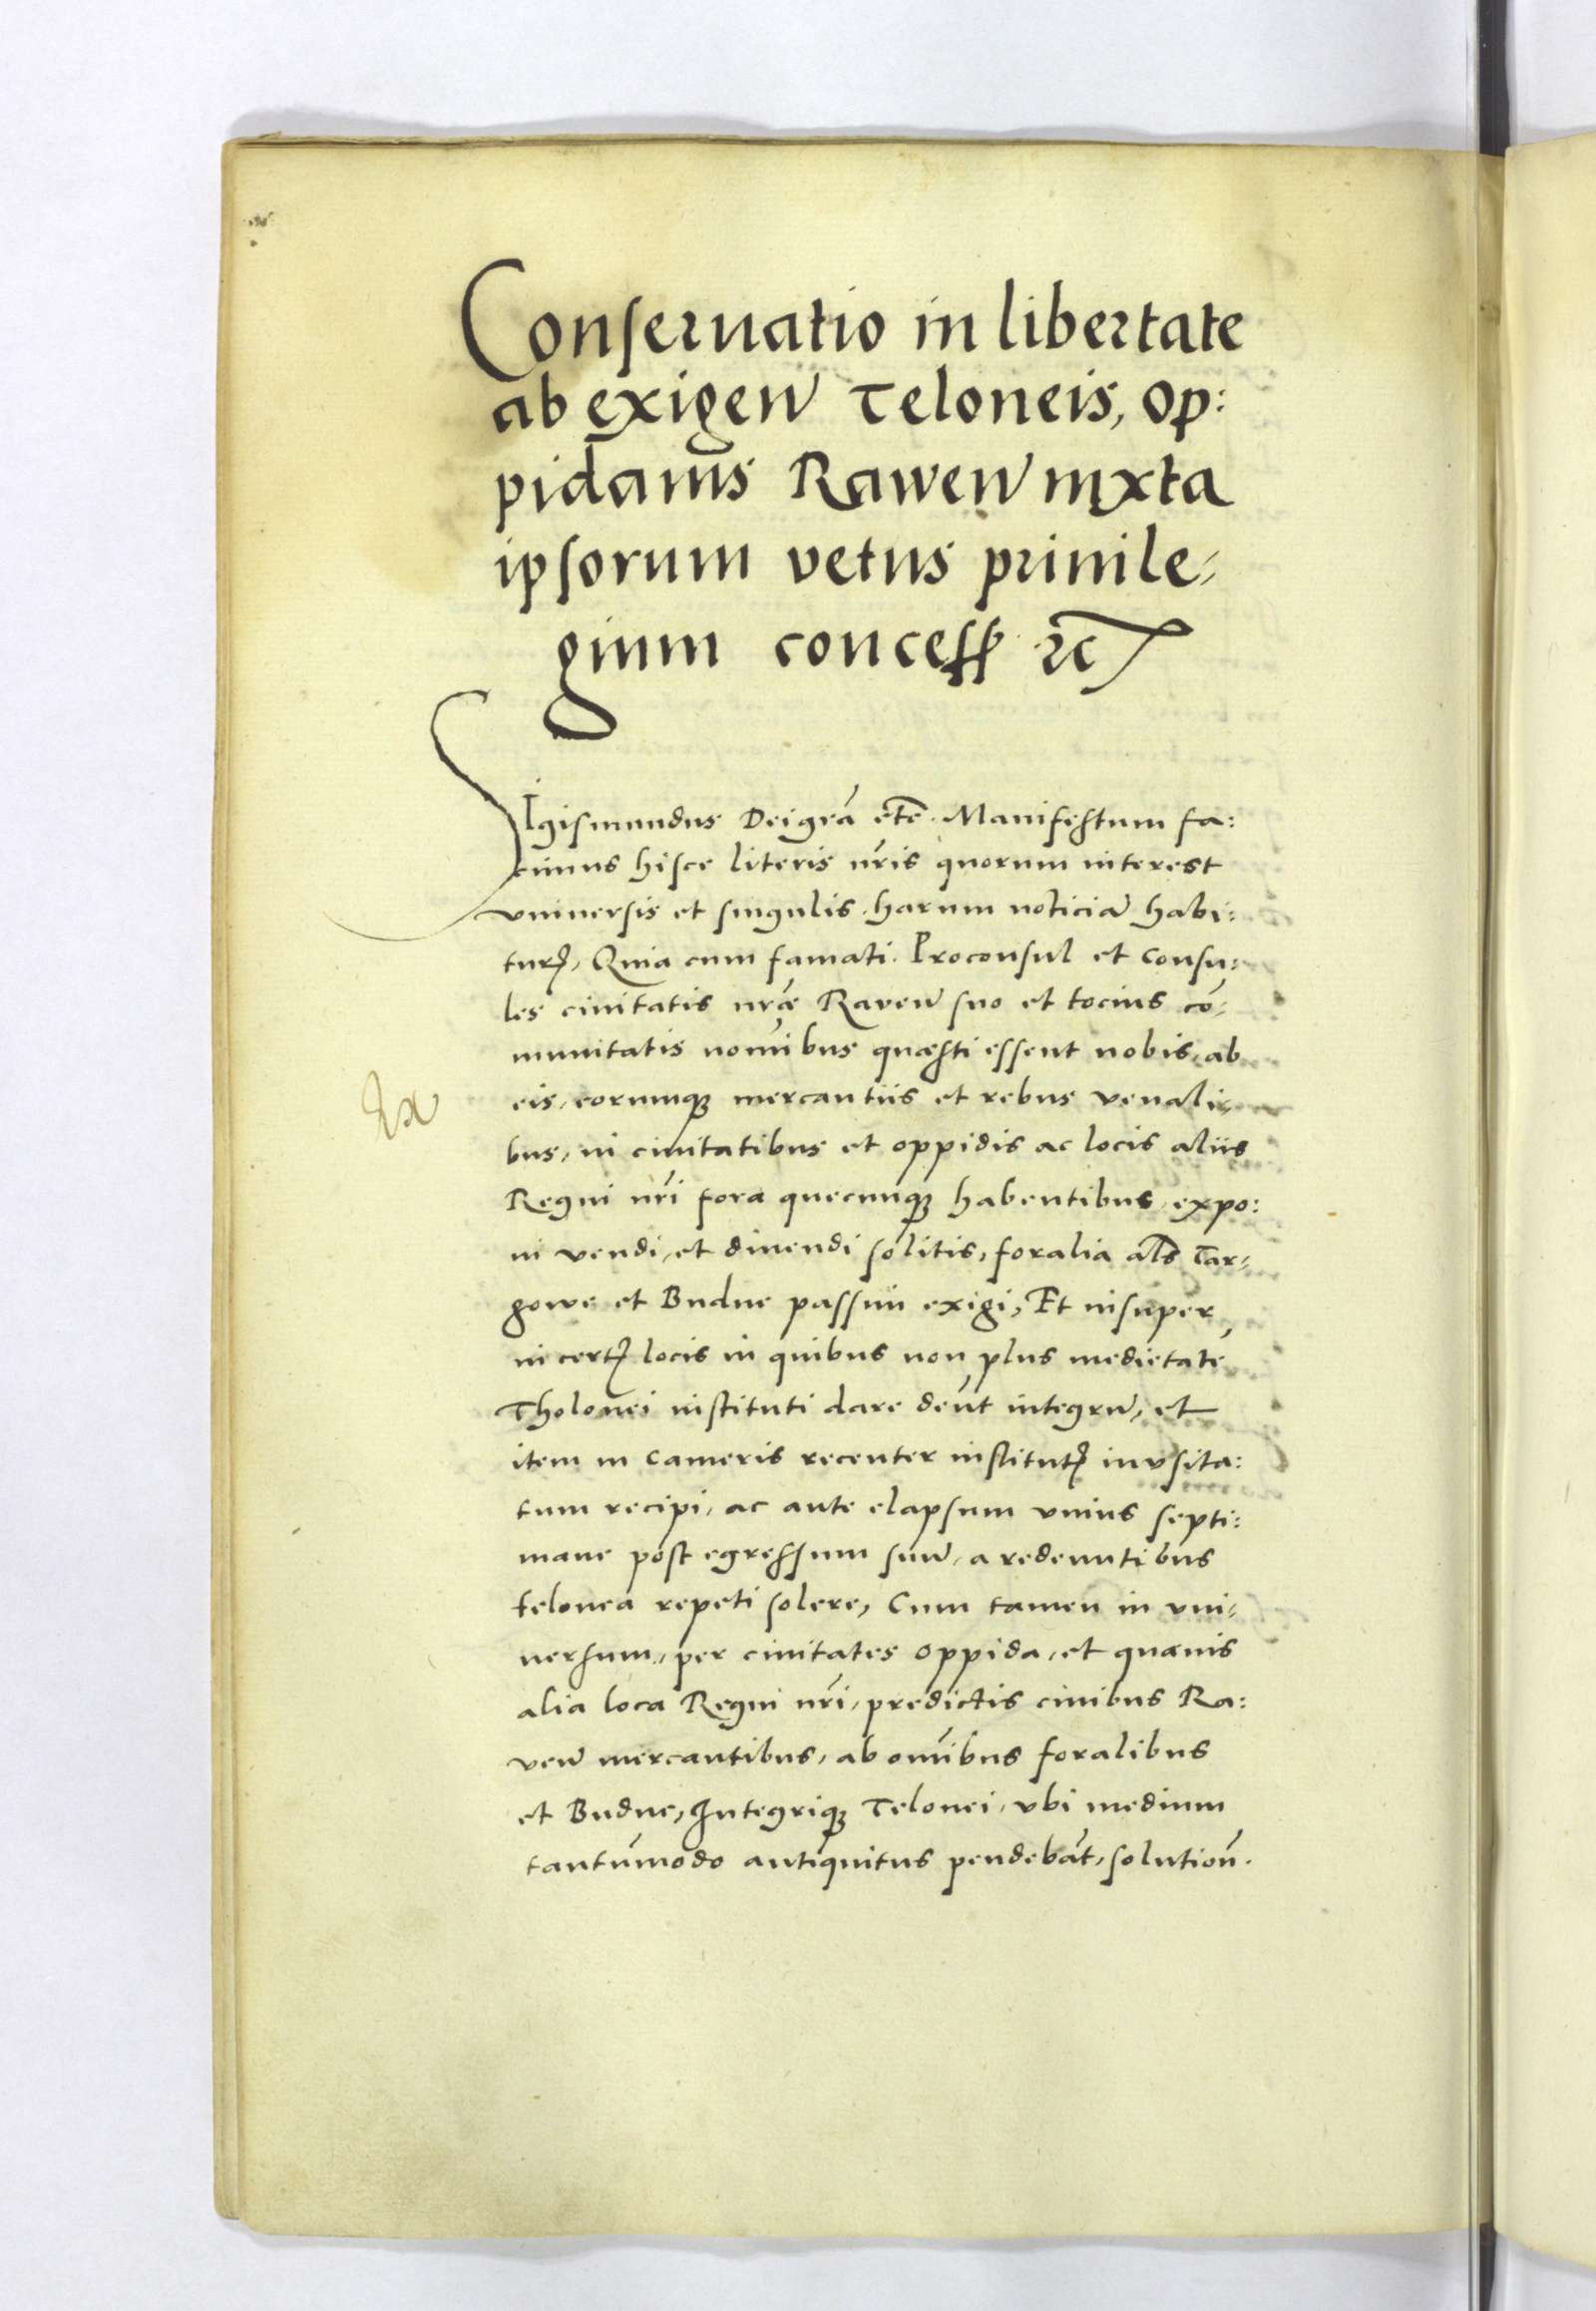 Conseruatio in libertate
ab exigen̄ Teloneis, op:
pidanis Rawen̄ iuxta
ipsorum vetus priuile-
gium concess. etc
SIgismundus Dei grã etc. Manifestum fa:
cimus hisce literis nr̃is quorum interest
vniuersis et singulis harum noticiã habi:
turꝭ, Quia cum famati. Proconsul et Consu:
les ciuitatis nr̃ae Raven̄ suo et tocius cõ-
munitatis nomĩbus quaesti essent nobis, ab
eis, eorumqꝫ mercantiis et rebus venali-
bus, in ciuitatibus et oppidis ac locis aliis
Regni nr̃i fora quecunqꝫ habentibus, expo:
ni vendi, et diuendi solitis, foralia als̃ Tar-
gowe et Budne passim exigi, Et insuper
in certꝭ locis in quibus non plus medietate
Tholonei instituti dare deñt integrũ, et
item in Cameris recenter institutꝭ invsita:
tum recipi, ac ante elapsum vnius septi:
mane post egressum suũ, a redeuntibus
telonea repeti solere, Cum tamen in vni-
uersum, per ciuitates oppida, et quaeuis
alia loca Regni nr̃i, predictis ciuibus Ra:
ven̄ mercantibus, ab omĩbus foralibus
et Budne, Integriqꝫ Telonei, vbi medium
tantũmodo antiquitus pendebãt, solution̄.